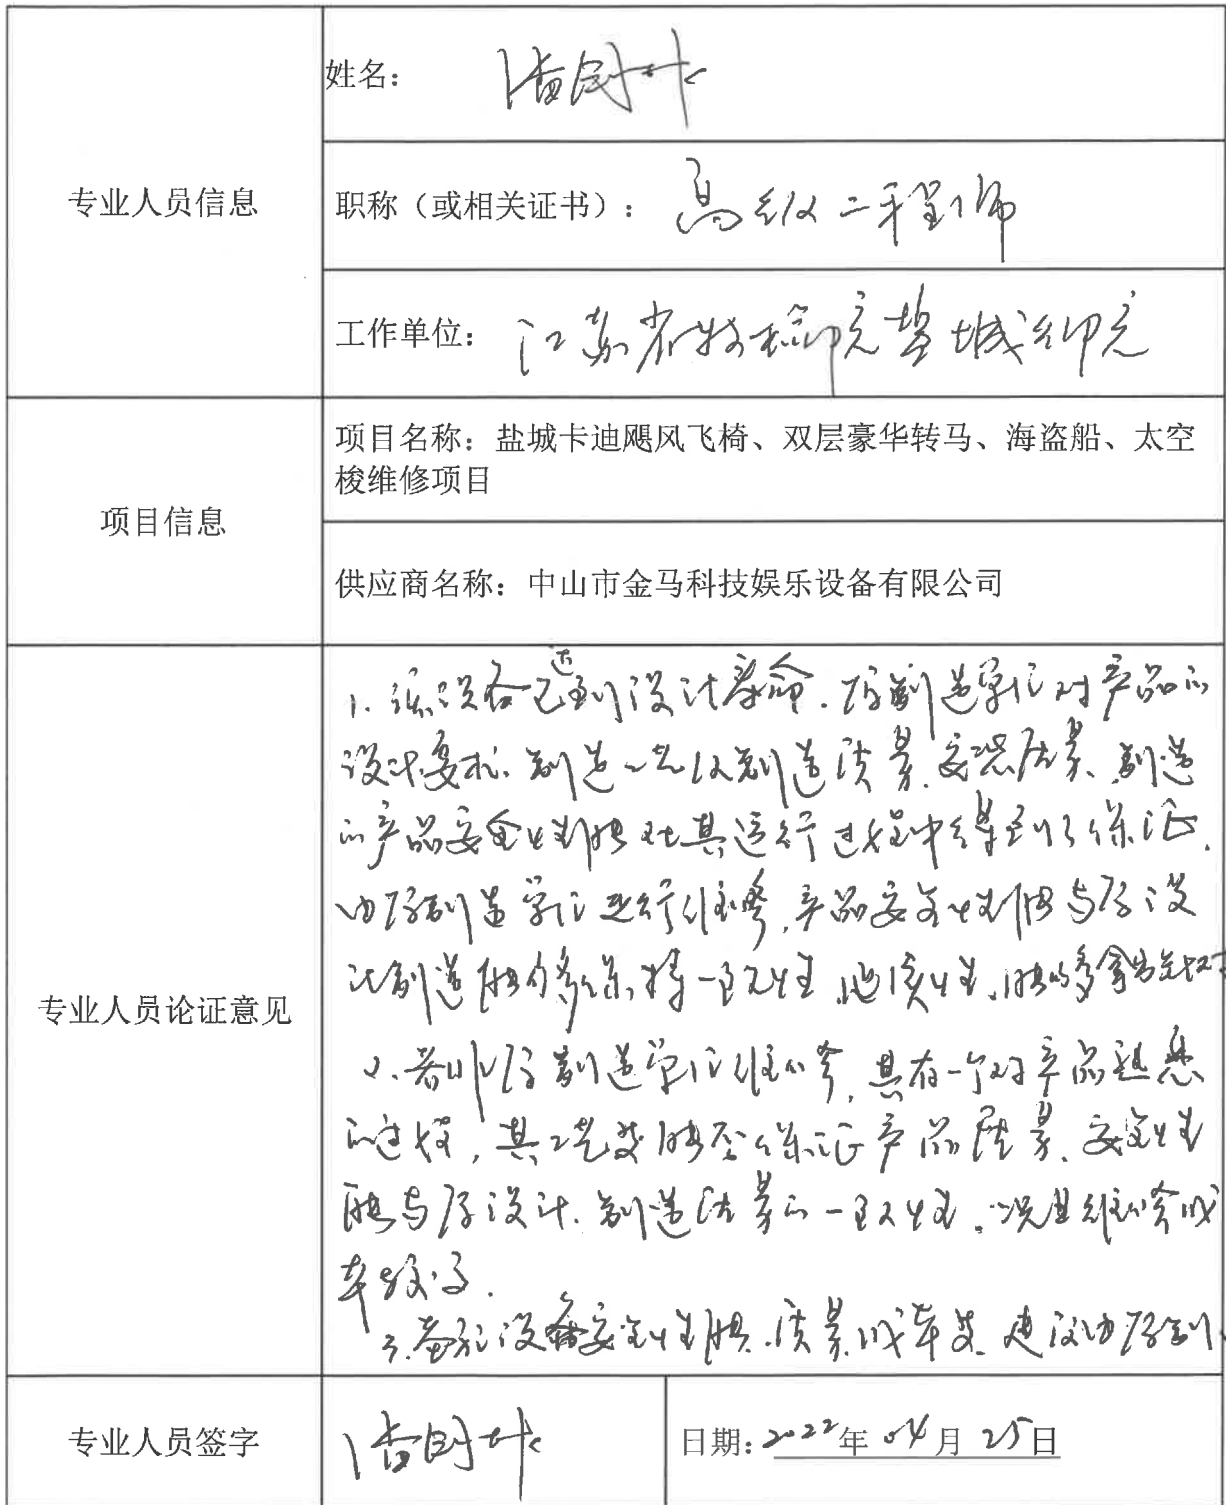 姓名：
专业人员信息
职称（或相关证书）：高级工程师
工作单位：江苏省特检院盐城分院
项目名称：盐城卡迪飓风飞椅、双层豪华转马、海盗船、太空
梭维修项目
项目信息
供应商名称：中山市金马科技娱乐设备有限公司
1. 该设备已达到设计寿命. 原制造单位对产品的
设计要求、制造工艺以制造质量、安装质量、制造
的产品安全性能在其运行过程中得到了保证.
由原制造单位进行维修, 产品安全性能与原设
计制造能够保持一致性
专业人员论证意见
2. 若非原制造单位维修, 具有一个对产品熟悉
的过程, 其工艺 能否保证产品质量、安全性
能与原设计、制造质量的一致性. 况且维修成
本较高.
3. 设备安全性能. 质量. 成本 建议由原制
专业人员签字
日期：2022年04月25日